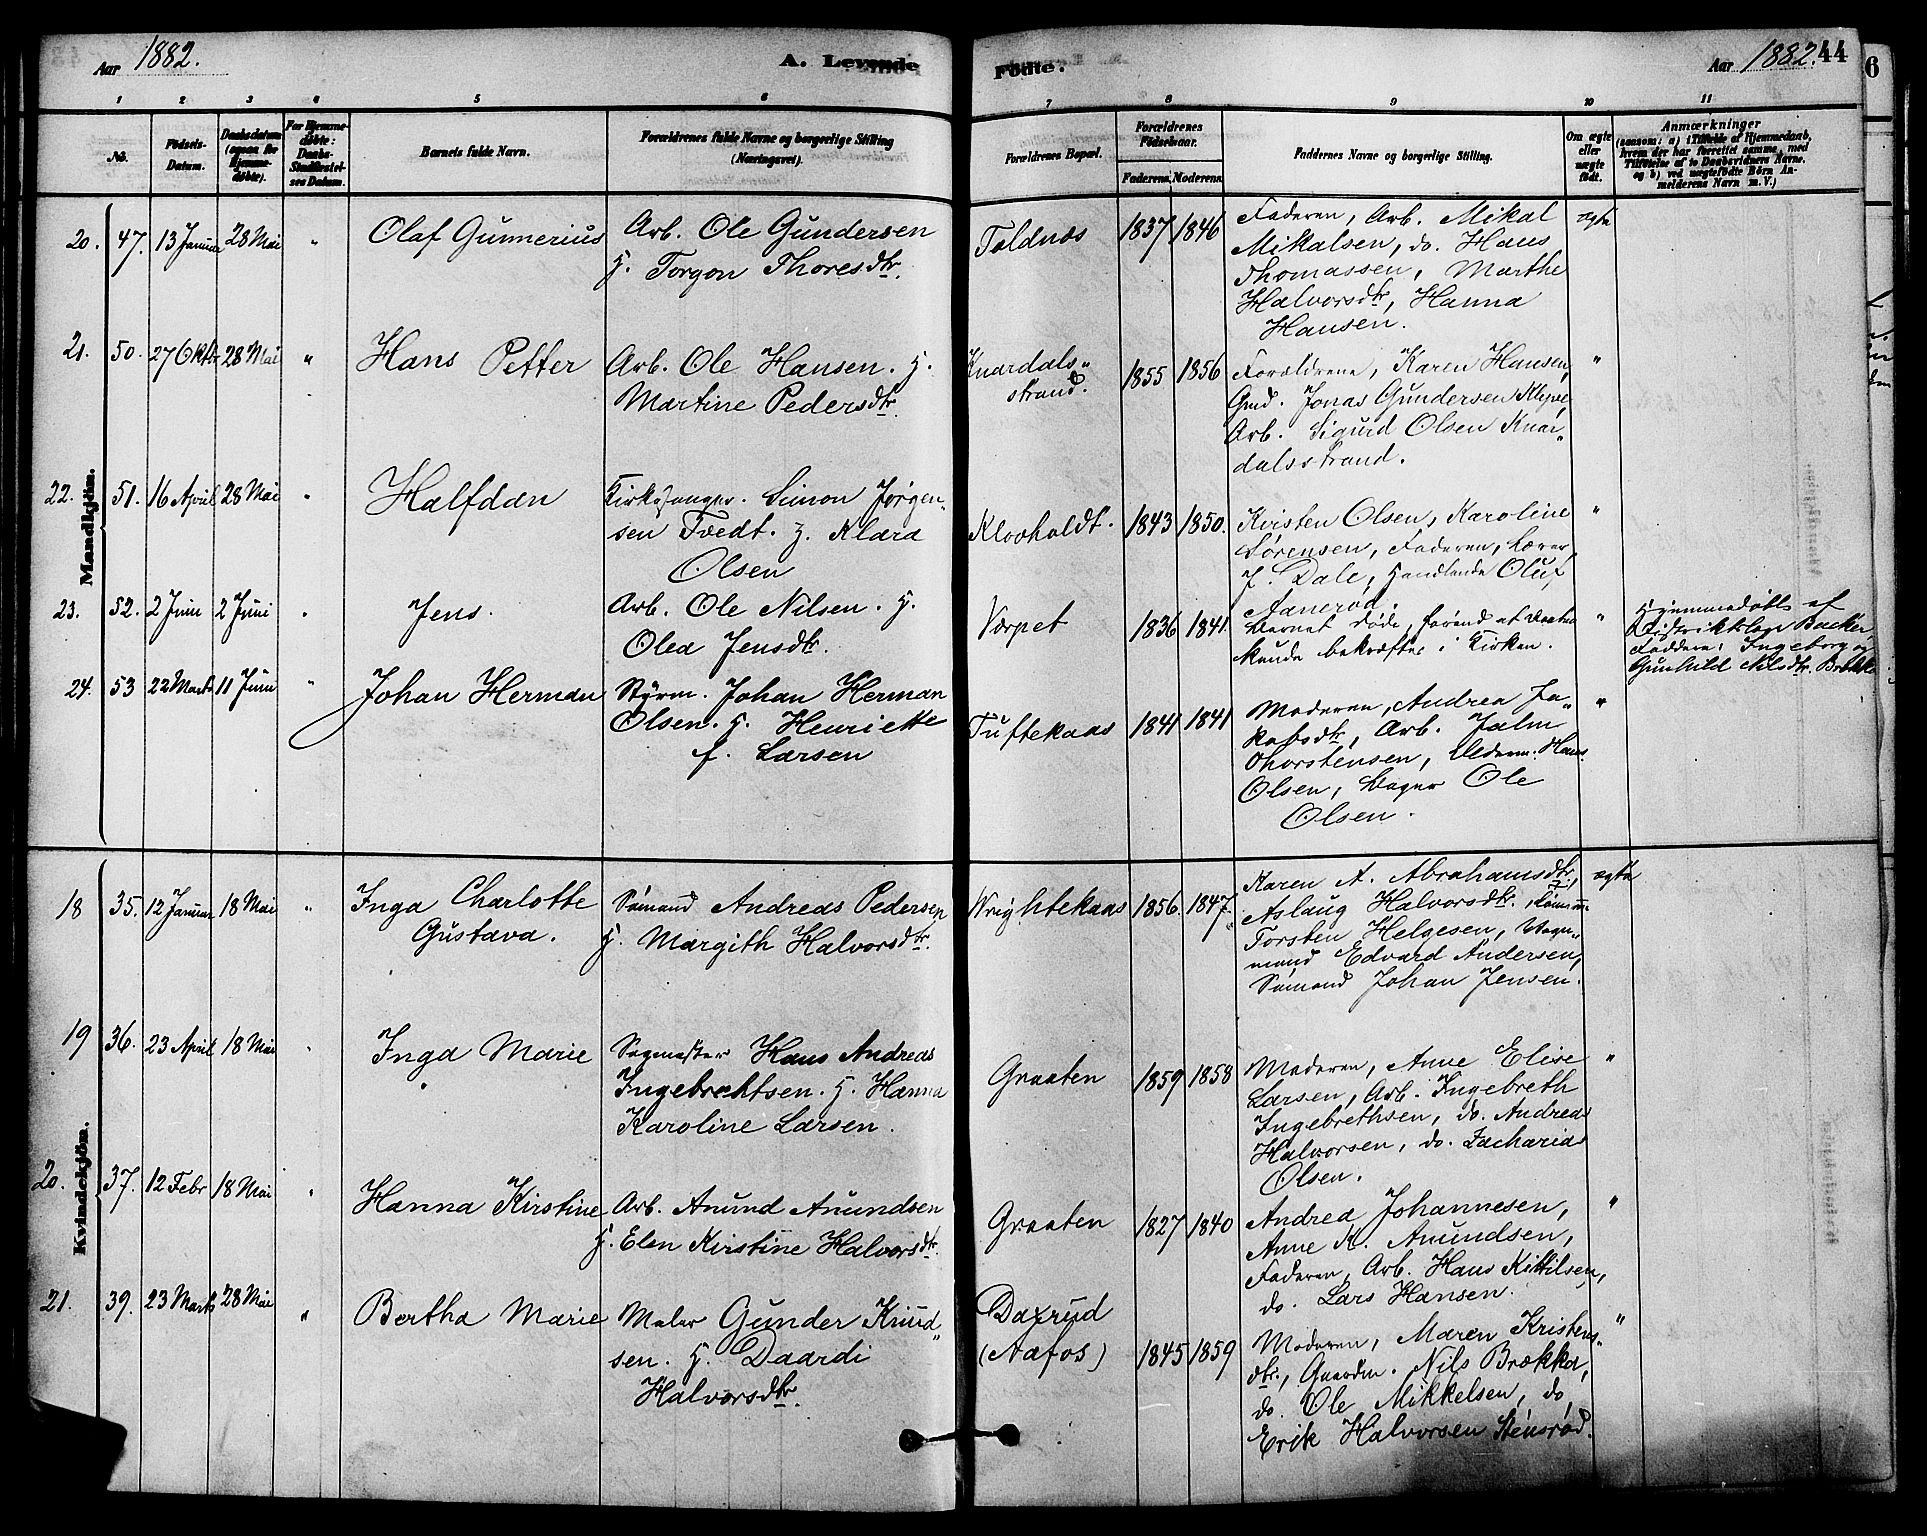 Aar 1882.
A. Levende
Födte.
Aar 1882. 44
6
1 2 3 4 5 6 7 8 9 10 11
No.
Födsels-
Datum.
Daabsdatum
(ogsaa for
Hjemme-
döbte).
For Hjemme-
döbte:
Daabs-
Stadfæstel-
ses Datum.
Barnets fulde Navn.
Forældrenes fulde Navne og borgerlige Stilling
(Næringsvei).
Forældrenes Bopæl.
Forældrenes
Födselsaar.
Faderens. Moderens.
Faddernes Navne og borgerlige Stilling.
Om ægte
eller
uægte
födt.
Anmærkninger
(saasom: a) i Tilfælde af Hjemmedaab,
hvem der har forrettet samme, med
Tilföielse af to Daabsvidners Navne.
og b) ved uægtefödte Börn An-
melderens Navn m. V.)
Mandkjön.
20. 47. 13 Januar 28 Mai "
Olaf Gunnerius
Arb. Ole Gundersen
H. Torgon Thoresdtr.
Toldnæs
1837 1846
Faderen, Arb. Mikal
Mikalsen, do. Hans
Thomassen, Marthe
Halvorsdtr, Hanna
Hansen.
ægte
21. 50. 27 Oktbr 28 Mai "
Hans Petter
Arb. Ole Hansen. H.
Martine Pedersdtr.
Knardals-
strand.
1855 1856
Forældrene, Karen Hansen,
Gmd. Jonas Gundersen Klyve,
Arb. Sigurd Olsen Knar-
dalsstrand.
"
22. 51. 16 April 28 Mai "
Halfdan
Kirkesanger. Simon Jørgen-
sen Tvedt. H. Klara
Olsen
Klovholdt.
1843 1850.
Kristen Olsen, Karoline
Sørensen, Faderen, Lærer
J. Dale, Handlende Oluf
Aanerød.
"
23. 52. 2 Juni 2 Juni "
Jens.
Arb. Ole Nilsen. H.
Olea Jensdtr.
Værpet
1836 1841.
Barnet døde, førend at Daaben
kunde bekræftes i Kirken.
"
Hjemmedøbt af
Distriktslæge Backer,
Faddere: Ingeborg og
Gunhild Nilsdtr. Brække
24. 53 22 Marts 11 Juni "
Johan Herman
Styrm. Johan Herman
Olsen. H. Henriette
f. Larsen
Tuftekaas
1841 1841
Moderen, Andrea Ja-
kobsdtr, Arb. Jalm
Thorstensen, Hans
Olsen, Ole
Olsen.
"
Kvindekjön.
18 35. 12 Januar 18 Mai "
Inga Charlotte
Gustava.
Sømand Andreas Pedersen
H. Margith Halvorsdtr.
Wrightekaas
1856. 1847.
Karen A. Abrahamsdtr,
Aslaug Halvorsdtr.,
Torsten Helgesen, Vogn-
mand Edvard Andersen,
Sømand Johan Jensen.
ægte
19 36. 23 April 18 Mai "
Inga Marie
Sagmester Hans Andreas
Ingebrethsen. H. Hanna
Karoline Larsen.
Graaten
1859 1858
Moderen, Anne Elise
Larsen, Arb. Ingebreth
Ingebrethsen, do. Andreas
Halvorsen, do. Zacharias
Olsen.
"
20. 37. 12 Febr 18 Mai "
Hanna Kirstine
Arb. Anund Anundsen
H. Elen Kirstine Halvorsdtr.
Graaten
1827 1840
Andrea Johannesen,
Anne K. Anundsen,
Faderen, Arb. Hans Kittilsen,
do. Lars Hansen.
"
21. 39. 23 Marts 28 Mai "
Bertha Marie
Maler Gunder Knud-
sen. H. Daardi
Halvorsdtr.
Daxrud
(Aafos)
1845 1859
Moderen, Maren Kristens-
dtr., Gaardm. Nils Brække,
do. Ole Mikkelsen, do
Erik Halvorsen Stensrød.
"